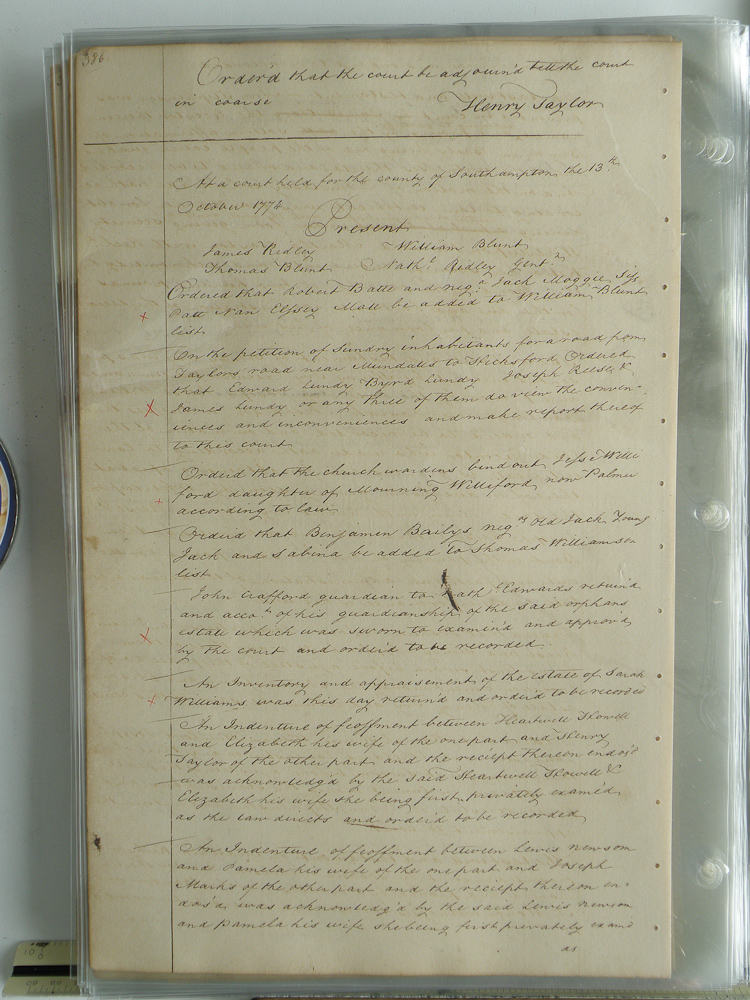 386
Order'd that the court be adjourn'd till the court
in coarse Henry Taylor
At a court held for the county of Southampton the 13th
October 1774
Present
James Ridley William Blunt
Thomas Blunt Nathl Ridley Gent.n
Ordered that Robert Batte and negs Jack Moggie
Patt Nan Matt be added to William Blunt
list
On the petition of Sundry inhabitants for a road from
Taylors road near to Hicksford Ordered
that Edward Lundy Byrd Lundy Joseph Reese &
James Lundy or any three of them do view the conven-
iences and inconveniences and make report thereof
to this court
Orderd that the church wardens bind out Jesse Wille
ford daughter of Mourning Willeford now Palmer
according to law
Orderd that Benjamen Bailys negs Old Jack Young
Jack and Sabina be added to Thomas Williamson
list
John Crafford guardian to Nath Edwards return'd
and accot of his guardianship of the said orphans
estate which was sworn to examin'd and approv'd
by the court and order'd to be recorded
An Inventory and appraisement of the estate of Sarah
Williams was this day return'd and order'd to be recorded
An Indenture of feoffment between Heartwell Howell
and Elizabeth his wife of the one part and Henry
Taylor of the other part and the reciept thereon endosd
was acknowledg'd by the said Heartwell Howell &
Elizabeth his wife she being first privately examed
as the law directs and order'd to be recorded
An Indenture of feoffment between Lewis Newsom
and Pamela his wife of the one part and Joseph
Marks of the other part and the reciept thereon en-
dos'd was acknowledg'd by the said Lewis Newsom
and Pamela his wife she being first privately examd
as